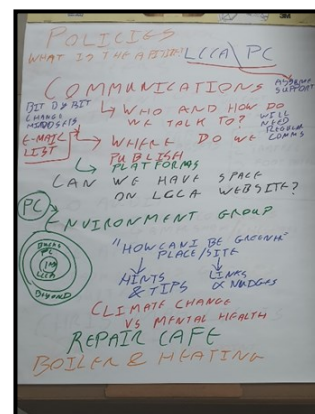 POLICIES
WHAT IS THE LCCA\PC
COMMUNICATIONS
ASSEMBLY SUPPORT
BIT BY BIT
CHANGE
MINDSETS
WHO AND HOW DO
WE TALK TO?
WILL
NEED
REGULAR
COMMS
E-MAIL
LIST
WHERE DO WE
PUBLISH
PLATFORMS
CAN WE HAVE SPACE
ON LCCA WEBSITE?
PC
ENVIRONMENT GROUP
"HOW CAN I BE GREENER"
PLACE/SITE
HINTS
& TIPS
LINKS
& NUDGES
PC
LCCA
BEYOND
CLIMATE CHANGE
VS MENTAL HEALTH
REPAIR CAFE
BOILER & HEATING